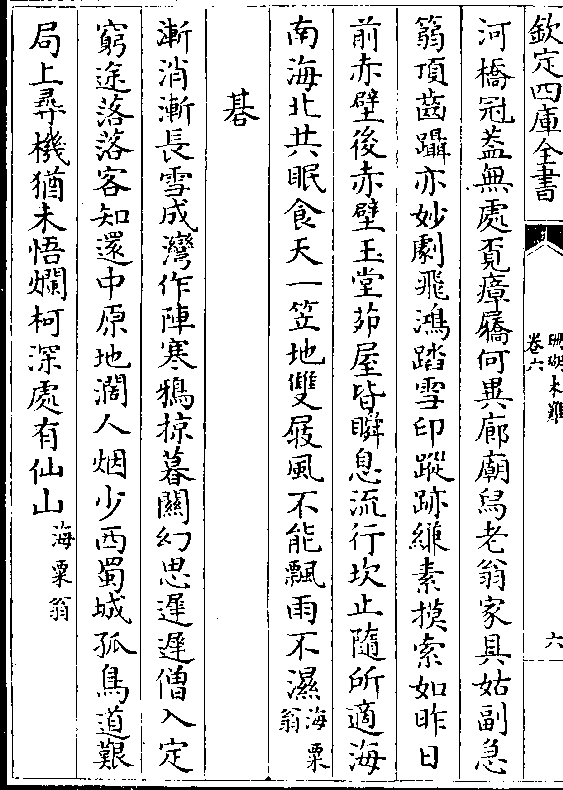 欽定四庫全書
珊瑚木難
卷六
六
河橋冠蓋無處覓瘴屩何異廊廟舄老翁家具姑副急
篛頂齒躡亦妙劇飛鴻踏雪印蹤跡縑素摸索如昨日
前赤壁後赤壁玉堂茆屋皆瞬息流行坎止隨所適海
南海北共眠食天一笠地雙屐風不能飄雨不濕海粟翁
棊
漸消漸長雪成灣作陣寒鴉掠暮關幻思遲遲僧入定
窮途落落客知還中原地濶人烟少西蜀城孤鳥道艱
局上尋機猶未悟爛柯深處有仙山海粟翁